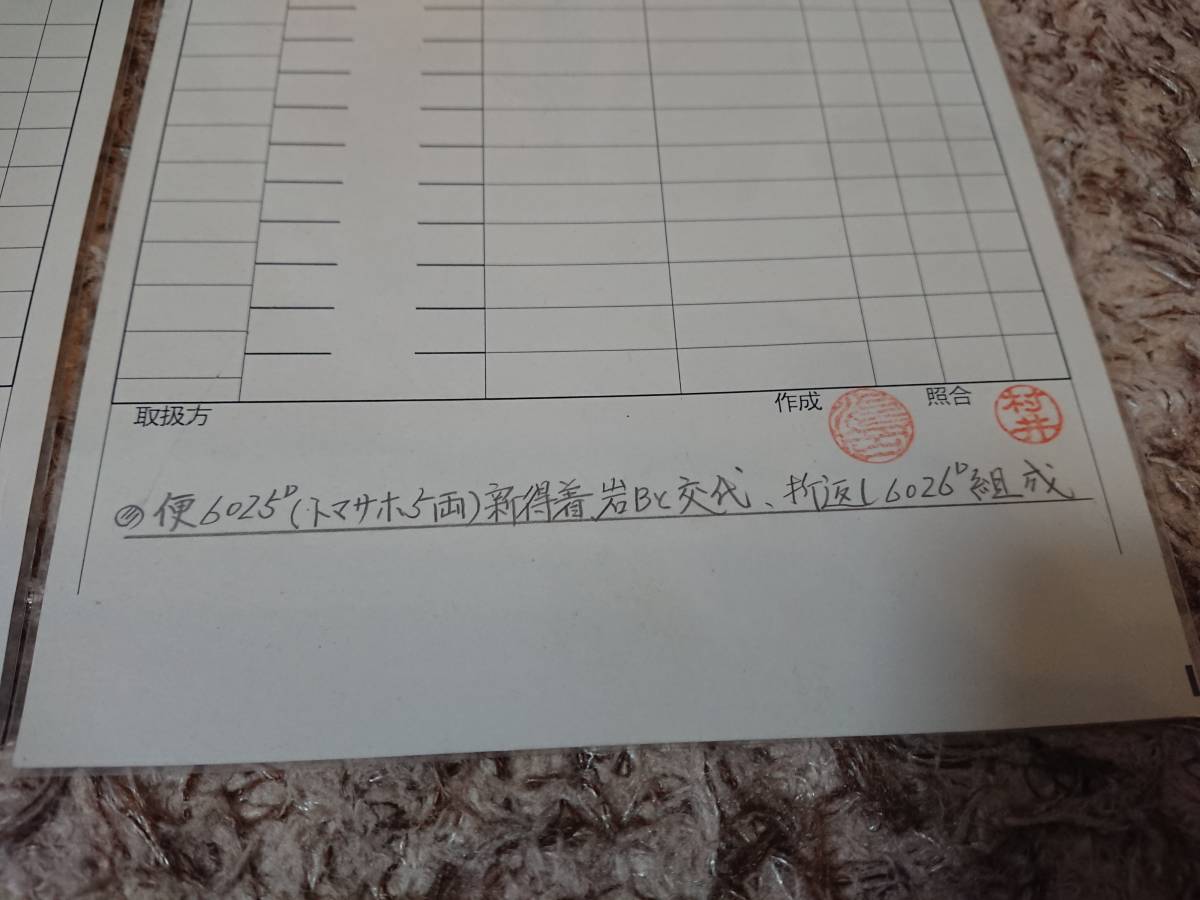 取扱方
作成
照合
村井
便6025D(トマサホ5両)新得着岩Bと交代、折返し6026D組成